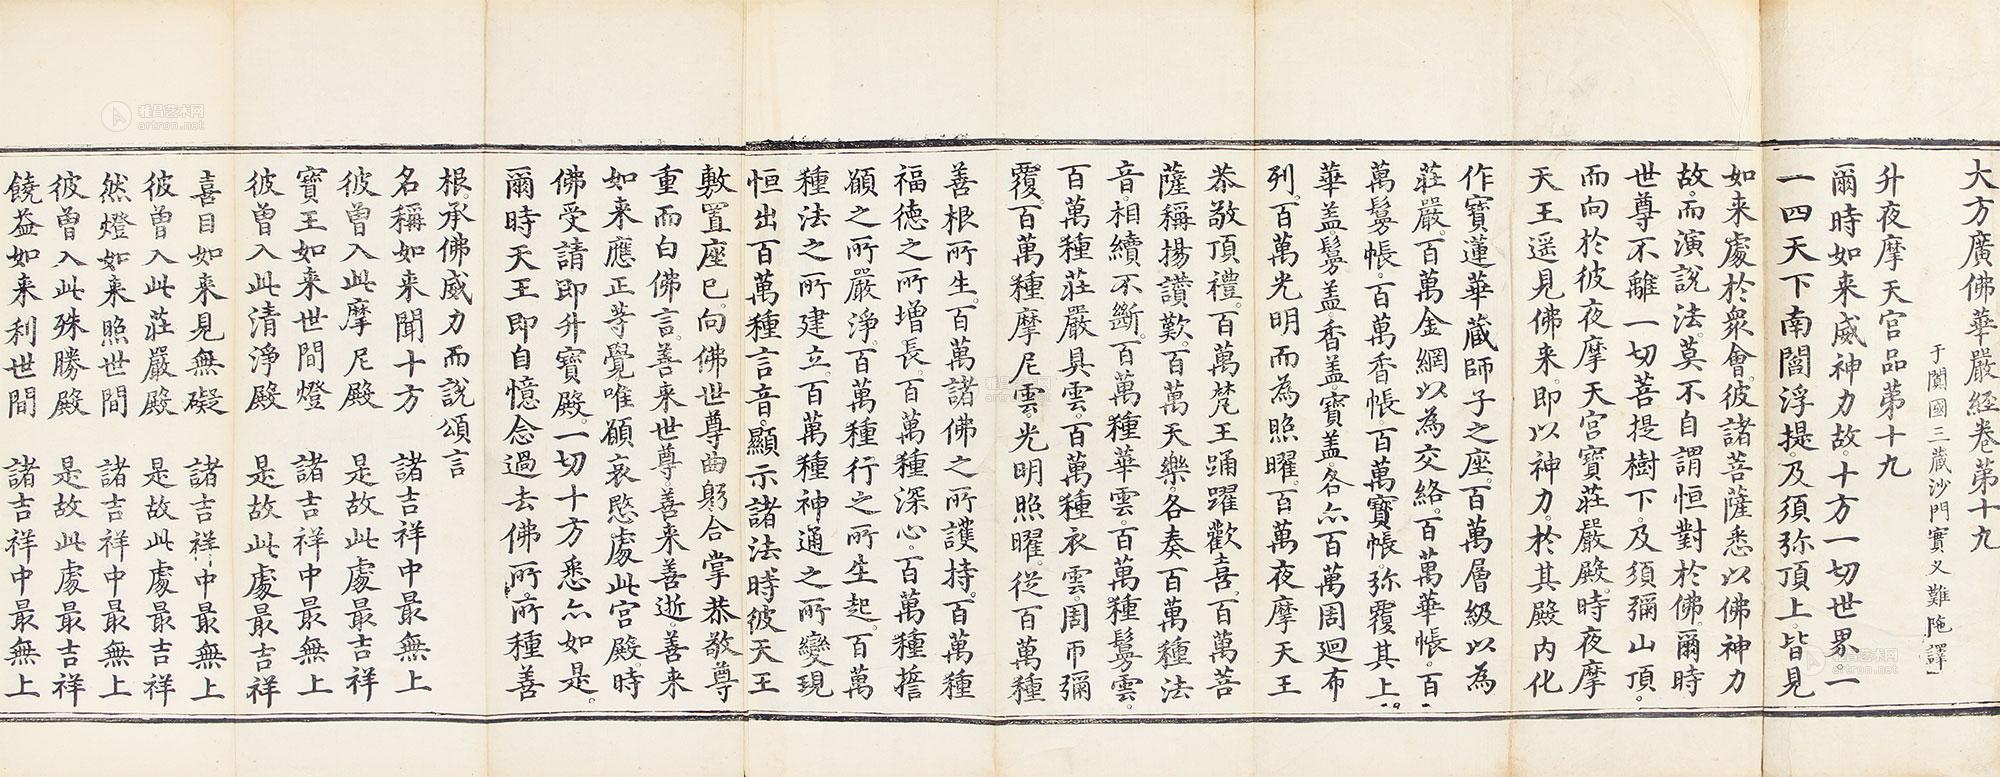 大方廣佛華嚴經卷第十九
于闐國三藏沙門實叉難陁譯
升夜摩天宫品苐十九
爾時如来威神力故。十方一切世界。一
一四天下南閻浮提。及須弥頂上。皆見
如来處於衆會。彼諸菩薩悉以佛神力
故。而演說法。莫不自謂恒對於佛。爾時
世尊不離一切菩提樹下。及須彌山頂。
而向於彼夜摩天宮寶莊嚴殿。時夜摩
天王遥見佛来。即以神力。於其殿内化
作寶蓮華藏師子之座。百萬層級以為
莊嚴。百萬金網以為交絡。百萬華帳。百
萬鬘帳。百萬香帳。百萬寶帳。弥覆其上。
華盖。鬘盖。香盖。寶盖。各亦百萬周迴布
列。百萬光明而為照曜。百萬夜摩天王
恭敬頂禮。百萬梵王踊躍歡喜。百萬菩
薩稱揚讃歎。百萬天樂。各奏百萬種法
音。相續不斷。百萬種華雲。百萬種鬘雲。
百萬種莊嚴具雲。百萬種衣雲。周帀彌
覆。百萬種摩尼雲。光明照曜。従百萬種
善根所生。百萬諸佛之所護持。百萬種
福德之所增長。百萬種深心。百萬種誓
願之所嚴淨。百萬種行之所生起。百萬
種法之所建立。百萬種神通之所變現
恒出百萬種言音。顯示諸法時彼天王
敷置座已。向佛世尊曲躬合掌恭敬尊
重而白佛言。善来世尊。善来善逝善来
如来應正等覺唯願哀愍處此宫殿。時
佛受請即升寶殿。一切十方悉亦如是。
爾時天王即自憶念過去佛所。所種善
根。承佛威力而說頌言
名稱如来聞十方 諸吉祥中最無上
彼曾入此摩尼殿 是故此處最吉祥
寶王如来世間燈 諸吉祥中最無上
彼曾入此清淨殿 是故此處最吉祥
喜目如来見無礙 諸吉祥中最無上
彼曾入此莊嚴殿 是故此處最吉祥
然燈如来照世間 諸吉祥中最無上
彼曾入此殊勝殿 是故此處最吉祥
饒益如来利世間 諸吉祥中最無上
雅昌艺术网
artron.net